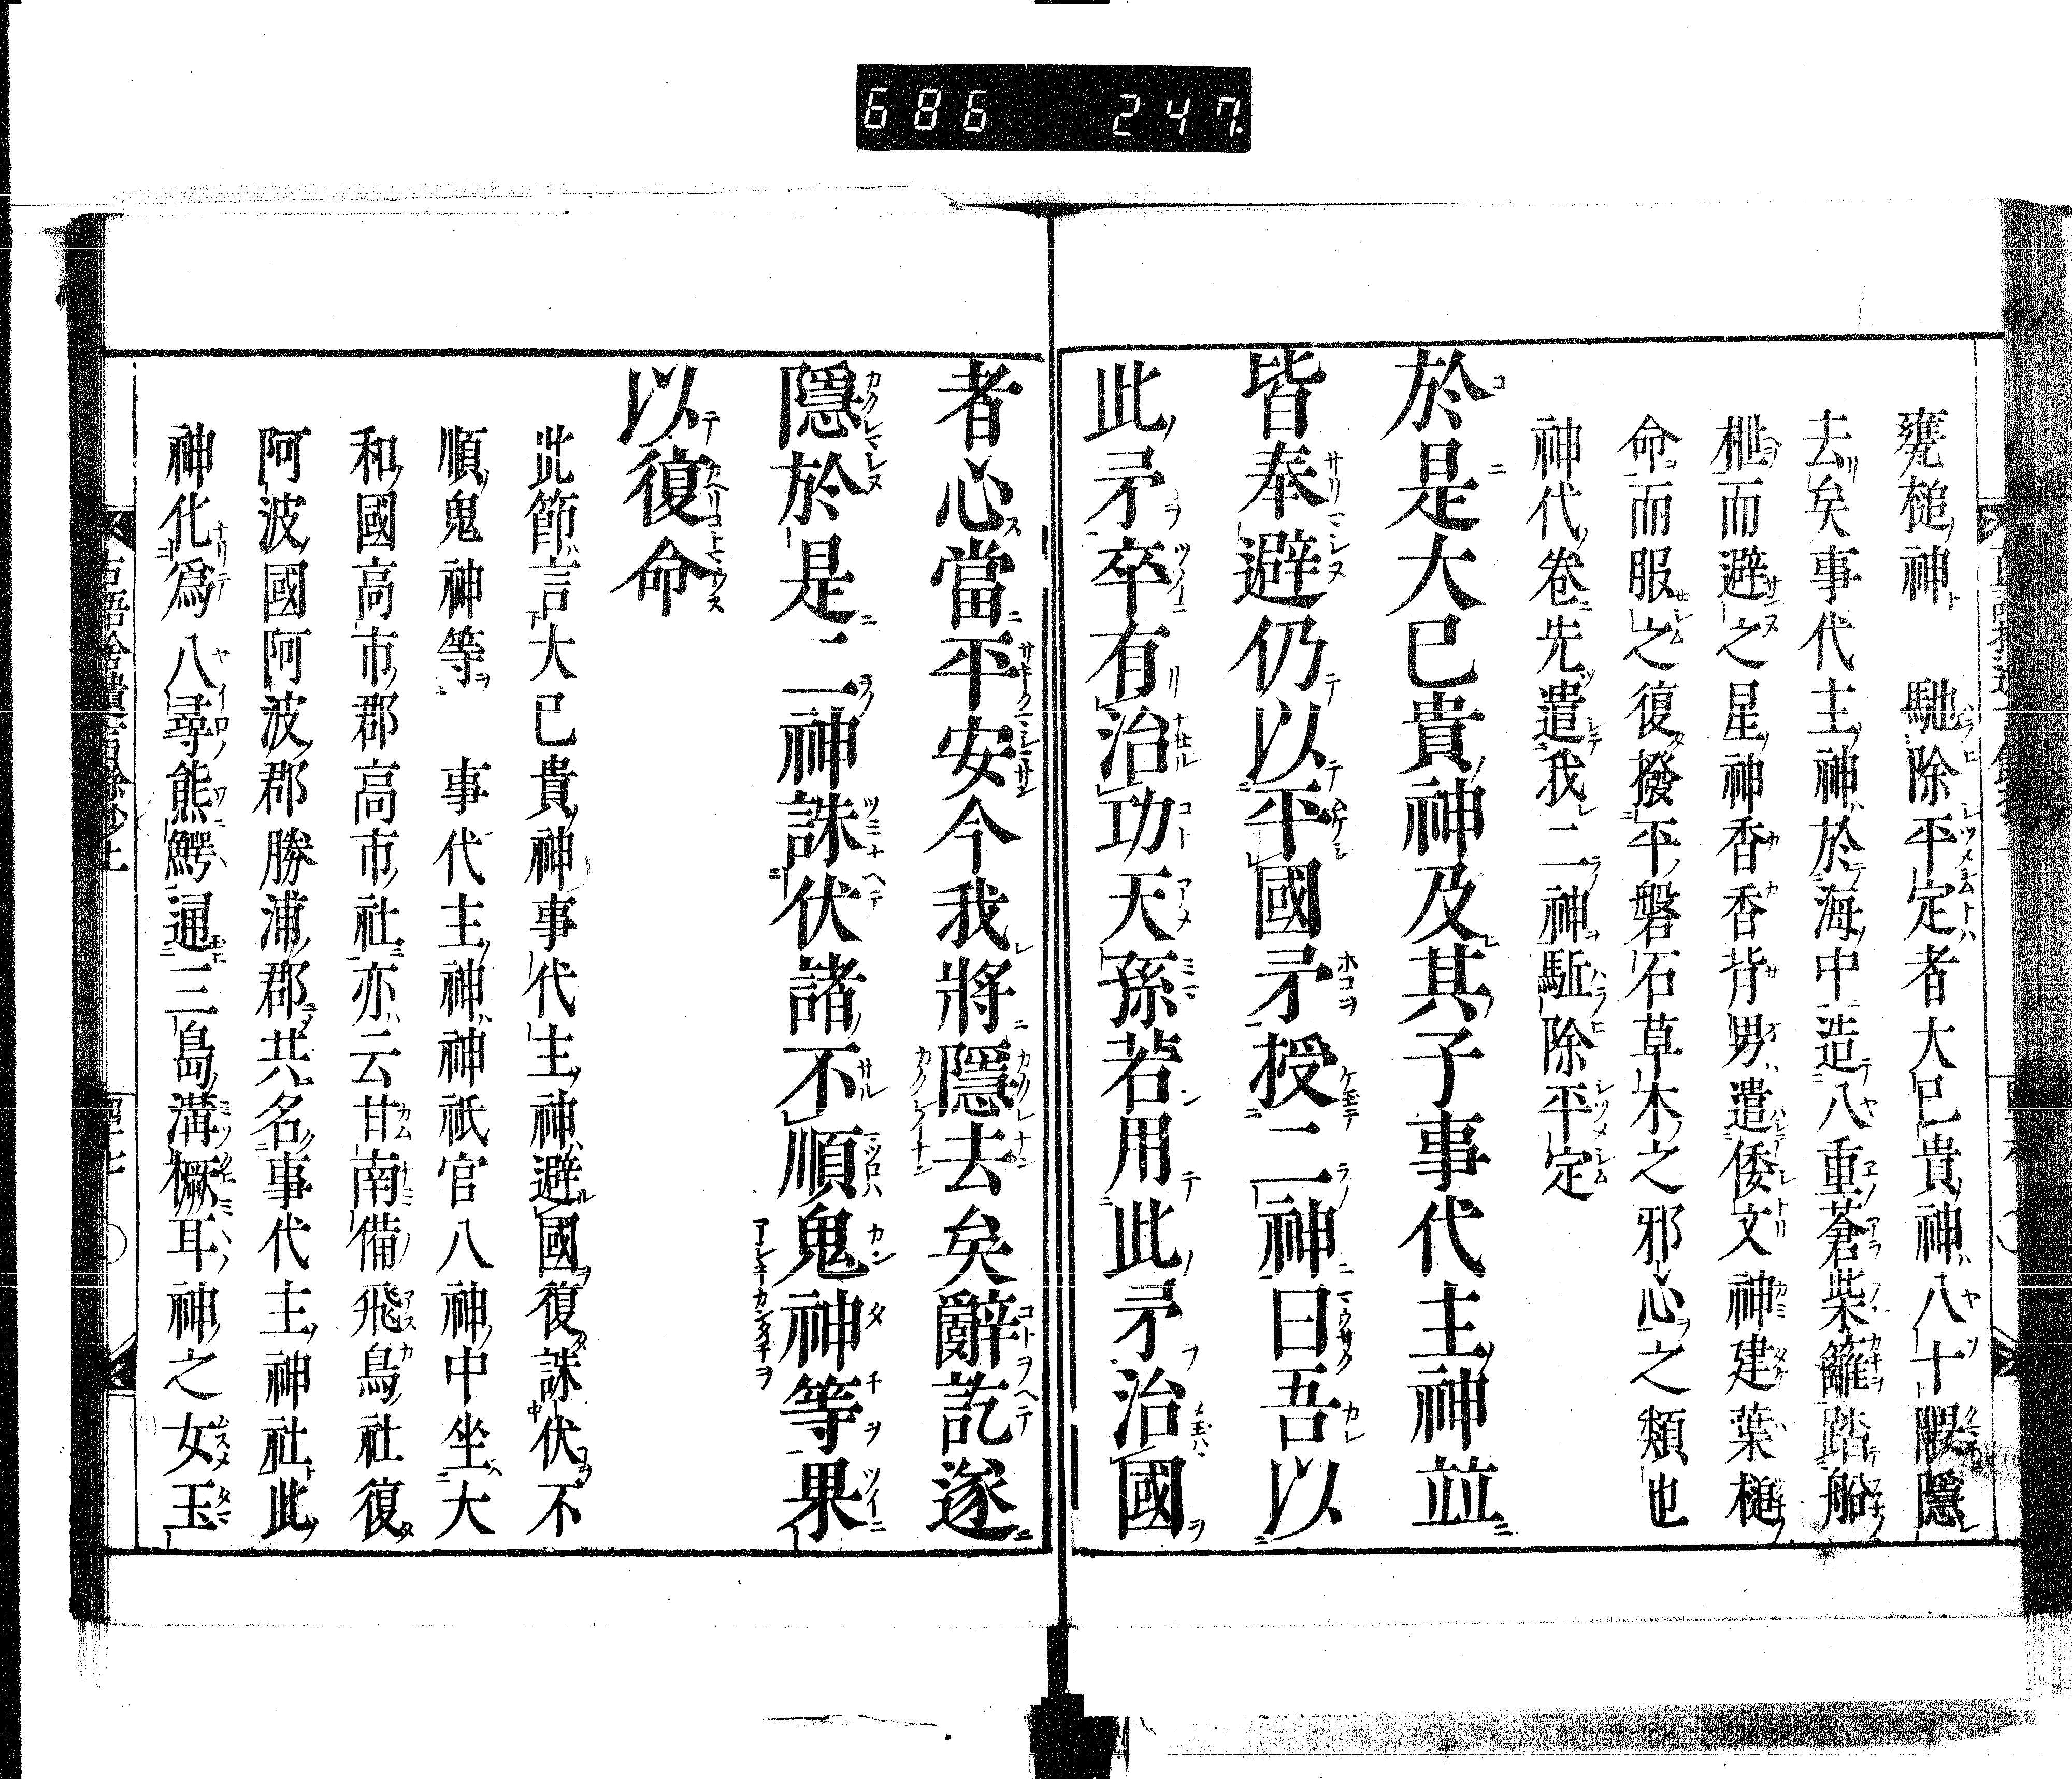 686 247
甕槌神 馳除平定者大巳貴神八十隈隱
去矣事代主神於海中造八重蒼柴籬踏船
枻而避之星神香香背男遣倭文神建葉槌
命而服之復撥平磐石草木之邪心之類也
神代卷先遣我二神駈除平定
於是大巳貴神及其子事代主神竝
皆奉避仍以平國矛授二神曰吾以
此矛卒有治功天孫若用此矛治國
者心當平安今我將隱去矣辭訖遂
隱於是二神誅伏諸不順鬼神等果
以復命
此節言大巳貴神事代主神避國復誅伏不
順鬼神等 事代主神神祇官八神中坐大
和國高市郡高市社亦云甘南備飛鳥社復
阿波國阿波郡勝浦郡共名事代主神社此
神化爲八尋熊鰐通三島溝橛耳神之女玉